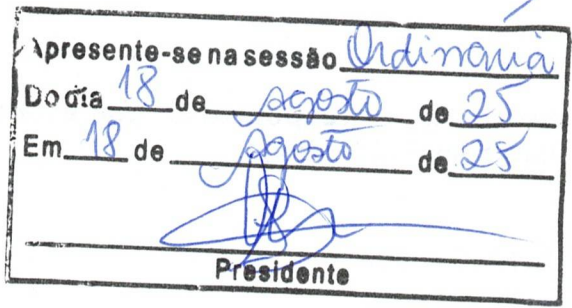 Apresente-se na sessão Ordinária
Do dia 18 de agosto de 25
Em 18 de agosto de 25
Presidente